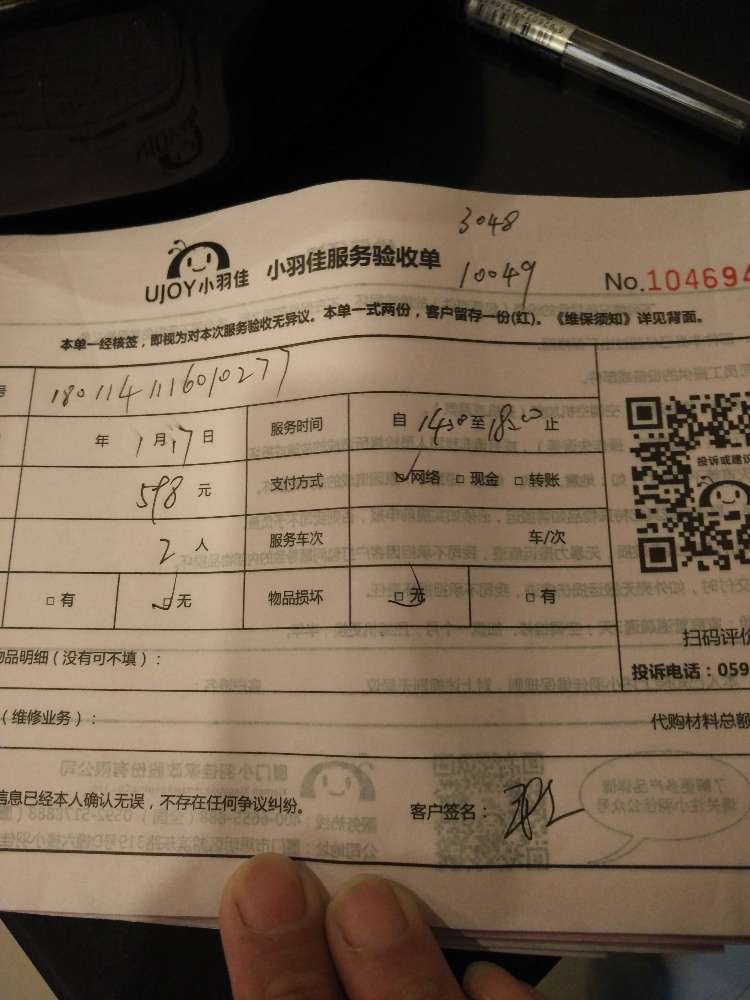 3048
UJOY小羽佳 小羽佳服务验收单 10049 No.104694
本单一经核签，即视为对本次服务验收无异议。本单一式两份，客户留存一份(红)。《维保须知》详见背面。
号 1801141116010277
年 1月17日 服务时间 自 1430 至 1800 止
598 元 支付方式 网络 □ 现金 □ 转账
投诉或建议
2 人 服务车次 车/次
□ 有 □ 无 物品损坏 □ 无 □ 有
扫码评价
物品明细（没有可不填）：
投诉电话：059
（维修业务）： 代购材料总额
信息已经本人确认无误，不存在任何争议纠纷。 客户签名：